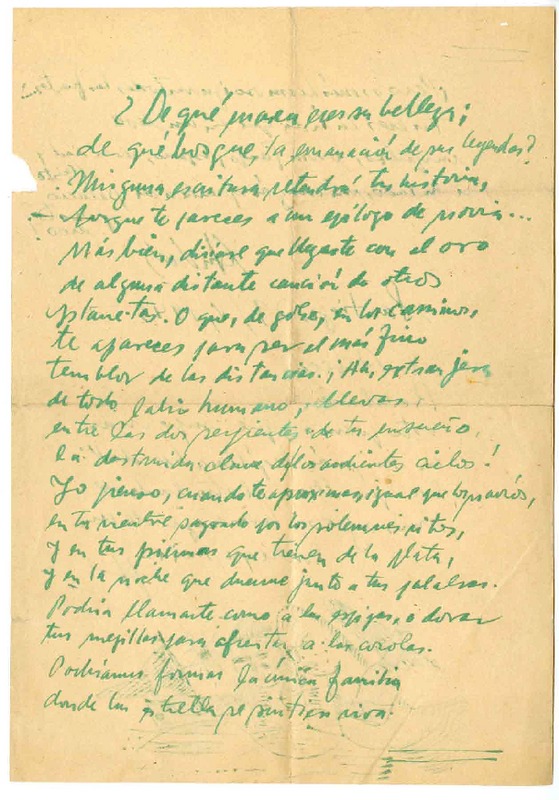 ¿De qué marca eres su belleza;
de qué bosque, la emanación de sus leyendas?
Ninguna escritura retendrá tu historia,
Porque te pareces a un epílogo de novia...
Más bien, diríase que llegaste con el oro
de alguna distante canción de otros
planetas. O que, de golpe, en los caminos,
te apareces para ser el más fino
temblor de las distancias. ¡Ah, extranjera
de todo labio humano, llevas
entre las dos serpientes de tu ensueño,
la destruida clave de los ardientes cielos!
Yo pienso, cuando te aproximas igual que los navíos,
en tu vientre sagrado por los solemnes ritos,
y en tus piernas que tienen de la plata,
y en la noche que duerme junto a tus palabras.
Podría llamarte como a las espigas, o dorar
tus mejillas para afrentar a las corolas.
Podríamos formar la única familia
donde las estrellas se sintiesen